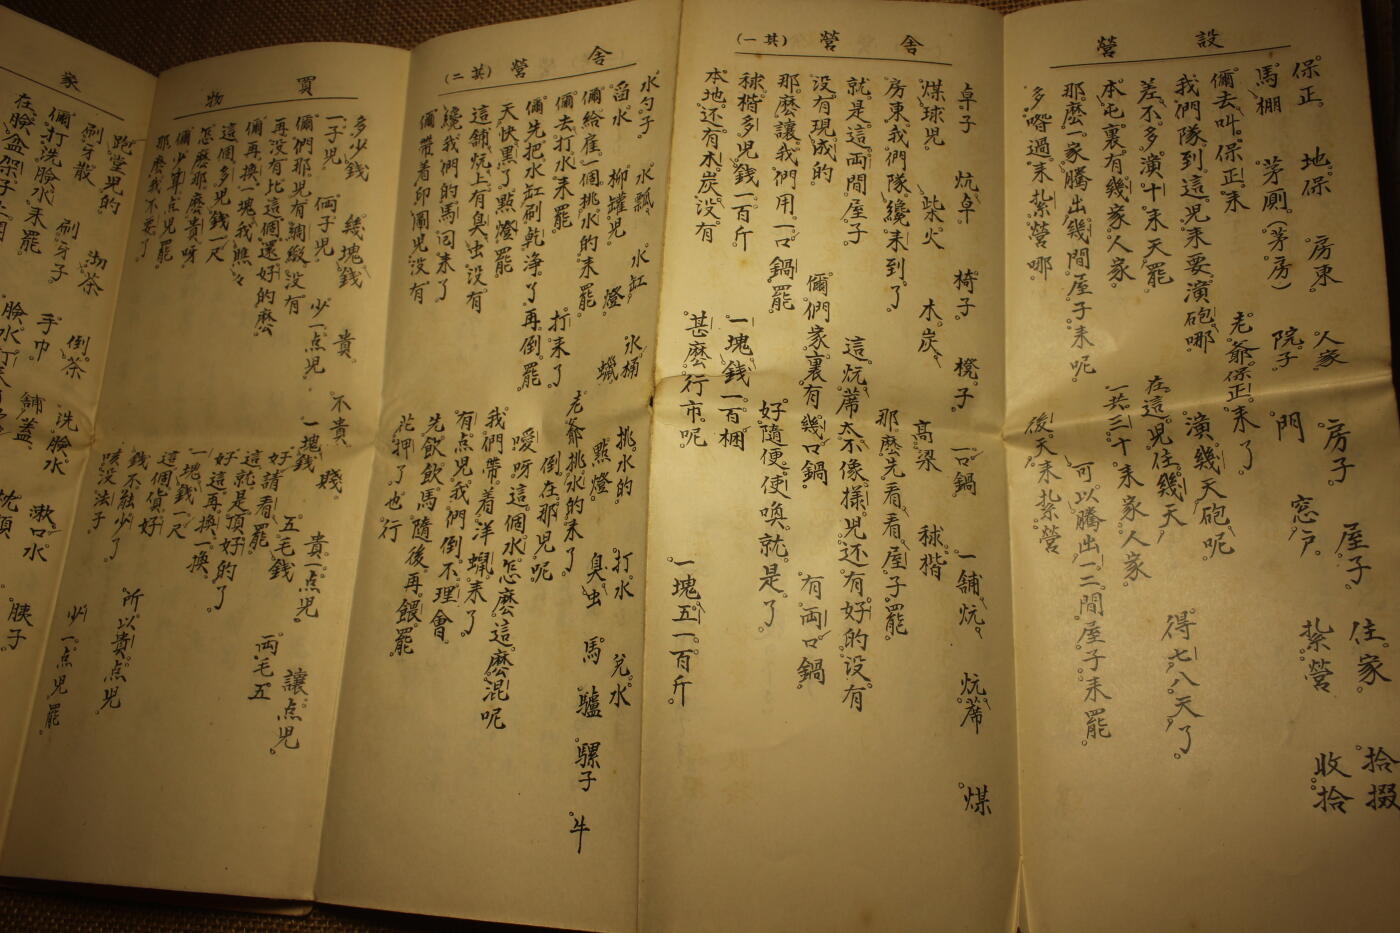 設營
保正 地保 房東 人家 房子 屋子 住家 拾掇
馬棚 茅廁(茅房) 院子 門 窓戶 紮營 收拾
儞去叫保正来 老爺保正来了
我們隊到這児来要演砲哪 演幾天砲呢
差不多演十来天罷 在這児住幾天 得七八天了
本屯裏有幾家人家 一共三十来家人家
那麼一家騰出幾間屋子来呢 可以騰出一二間屋子来罷
多喒過来紮營哪 後天来紮營
舍營(其一)
卓子 炕卓 椅子 櫈子 一口鍋 一舖炕 炕蓆 煤
煤球児 柴火 木炭 高梁 秫楷
房東我們隊纔来到了 那麼先看看屋子罷
就是這両間屋子 這炕蓆太不像樣児还有好的没有
没有現成的 儞們家裏有幾口鍋 有両口鍋
那麼讓我們用一口鍋罷 好隨便使喚就是了
秫楷多児錢一百斤 一塊錢一百梱
本地还有木炭没有 甚麼行市呢 一塊五一百斤
舍營(其二)
水勺子 水瓢 水缸 水桶 挑水的 打水 兌水
舀水 柳罐児 燈 蠟 點燈 臭虫 馬 驢 騾子 牛
儞給雇一個挑水的来罷 老爺挑水的来了
儞去打水来罷 打来了 倒在那児呢
儞先把水缸刷乾浄了再倒罷 噯呀這個水怎麼這麼混呢
天快黑了點燈罷 我們帶着洋蠟来了
這舖炕上有臭虫没有 有点児我們倒不理會
纔我們的馬回来了 先飲飲馬隨後再餵罷
儞帶着印圖児没有 花押了也行
買物
多少錢 幾塊錢 貴 不貴 賤 貴一点児 讓点児
一子児 価子児 少一点児 一塊錢 五毛錢 両毛五
儞們那児有綢緞没有 好請看罷
再没有比這個還好的麼 這就是頂好的了
儞再換一塊我瞧々 好這再換一換
這個多児錢一尺 一塊錢一尺
怎麼那麼貴呀 這個貨好 所以貴点児
儞少算点児罷 錢不能少了 少一点児罷
那麼我不要了 咳没法子
家
跑堂児的 沏茶 倒茶 洗臉水 漱口水 胰子
刷牙散 刷牙子 手巾 舖盖 枕頭
儞打洗臉水来罷
在臉盆架子上